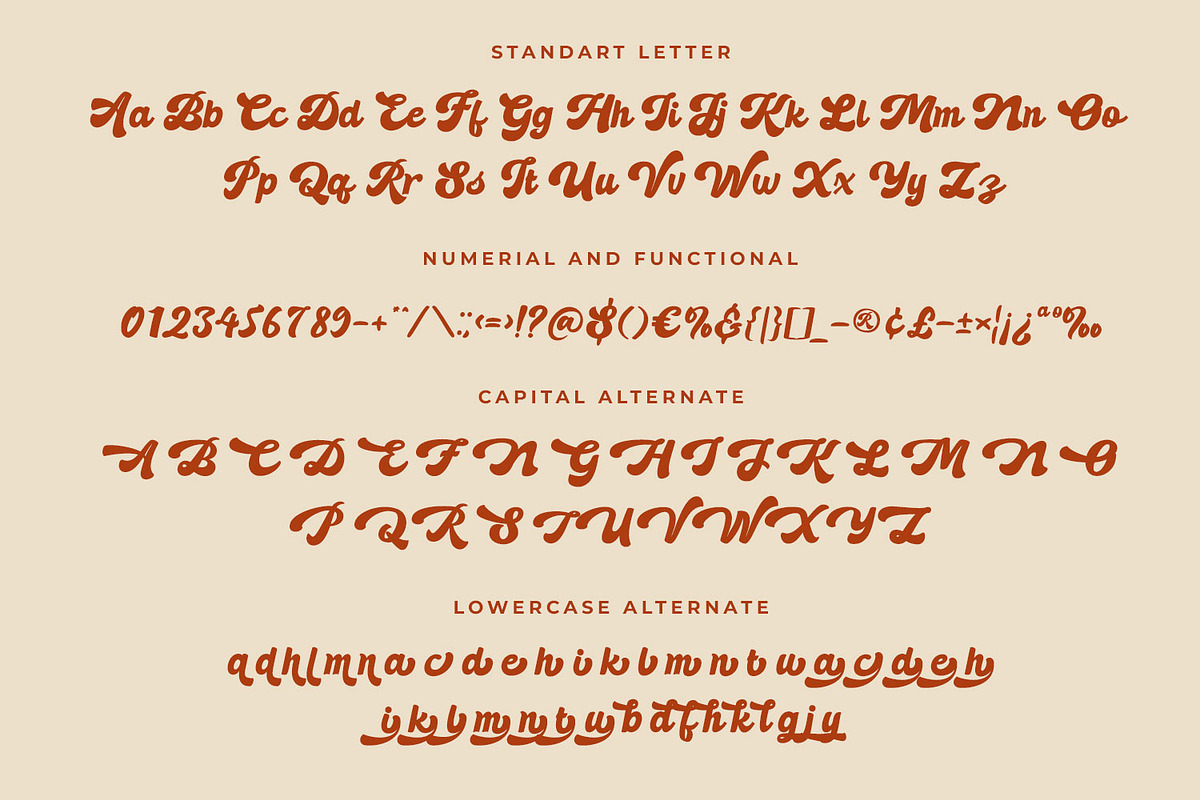 STANDART LETTER
Aa Bb Cc Dd Ee Ff Gg Hh Ii Jj Kk Ll Mm Nn Oo
Pp Qq Rr Ss Tt Uu Vv Ww Xx Yy Zz
NUMERIAL AND FUNCTIONAL
0123456789-+¨^/\:;‹=›!?@$()€%&{|}[]_–®¢£−±×¦¡¿ªº‰
CAPITAL ALTERNATE
A B C D E F N G H I J K L M N O
P Q R S T U V W X Y Z
LOWERCASE ALTERNATE
a d h l m n a c d e h i k l m n t u a c d e h
i k l m n t u b d f h k l g j y